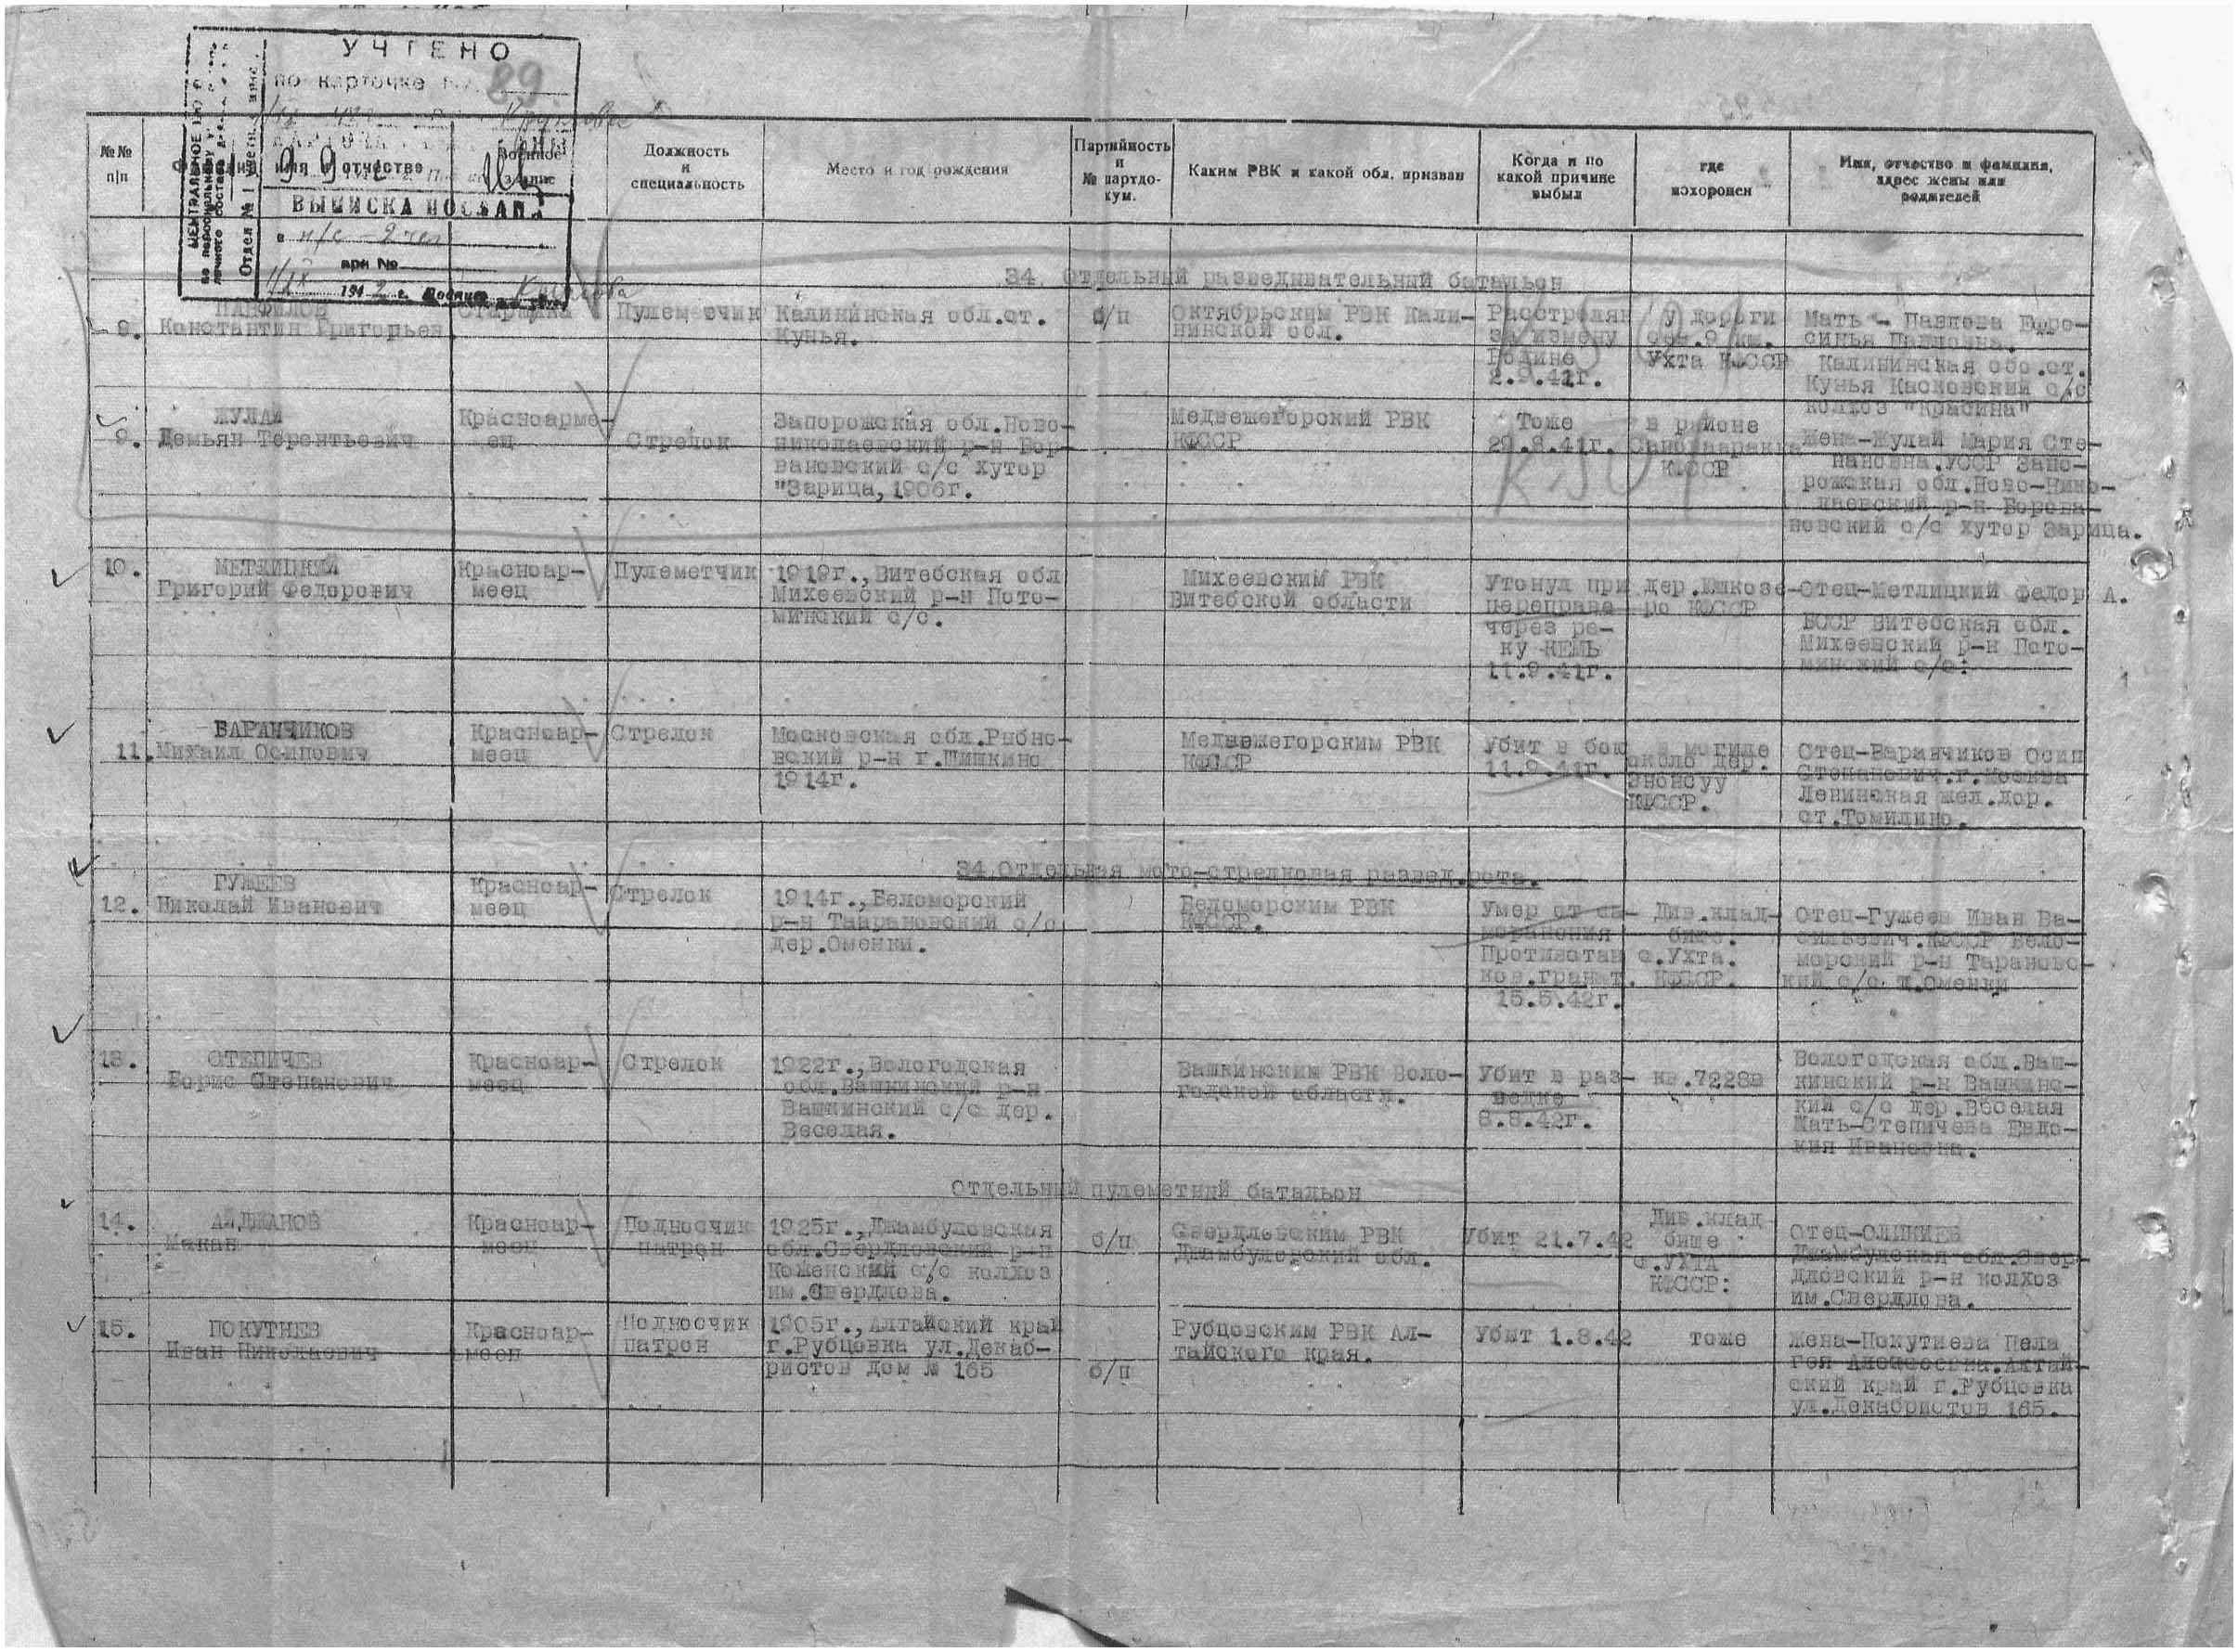 УЧТЕНО
по карточке
89.
ВЫПИСКА ПОСЛАНА
в н/с - 2 чел
при №
194 2 г.
ЦЕНТРАЛЬНОЕ БЮРО
по персональному
личного состава
Отдел № 1
№№ п|п
имя и отчество
Военное звание
Должность и специальность
Место и год рождения
Партийность и № партдокум.
Каким РВК и какой обл. призван
Когда и по какой причине выбыл
где похоронен
Имя, отчество и фамилия, адрес жены или родителей
34 Отдельный разведывательный батальон
8.
ПАНФИЛОВ
Константин Григорьев
Старшина
Пулеметчик
Калининская обл.ст.
Кунья.
б/п
Октябрьским РВК Кали-
нинской обл.
Расстрелян
за измену
Родине
2.9.41г.
у дороги
9 км.
Ухта КФССР
Мать - Павлова Ефро-
синья Павловна.
Калининская обл.ст.
Кунья Касковский с/с
колхоз "Красина"
9.
ЖУЛАЙ
Демьян Терентьевич
Красноарме-
ец
Стрелок
Запорожская обл.Ново-
николаевский р-н Бор-
вановский с/с хутор
"Зарица, 1906г.
Медвежегорский РВК
КФССР
Тоже
29.8.41г.
в районе
КФССР
Жена-Жулай Мария Сте-
пановна.УССР Запо-
рожская обл.Ново-Нико-
лаевский р-н Борева-
новский с/с хутор Зарица.
10.
МЕТЛИЦКИЙ
Григорий Федорович
Красноар-
меец
Пулеметчик
1919г.,Витебская обл
Михеевский р-н Пото-
минский с/с.
Михеевским РВК
Витебской области
Утонул при
переправе
через ре-
ку КЕМЬ
11.9.41г.
дер.Юшкозе-
ро КФССР
Отец-Метлицкий Федор А.
БССР Витебская обл.
Михеевский р-н Пото-
минский с/с:
11.
БАРАНЧИКОВ
Михаил Осипович
Красноар-
меец
Стрелок
Московская обл.Рыбно-
вский р-н г.Шишкино
1914г.
Медвежегорским РВК
КФССР
Убит в бою
11.9.41г.
в могиле
около дер.
Энонсуу
КФССР.
Отец-Баранчиков Осип
Степанович.г.Москва
Ленинская жел.дор.
ст.Томилино.
34 Отдельная мото-стрелковая развед.рота.
12.
ГУЖЕЕВ
Николай Иванович
Красноар-
меец
Стрелок
1914г.,Беломорский
р-н Таврановский с/с
дер.Оменки.
Беломорским РВК
КФССР.
Умер от са-
моранения
Противотан
ков.гранат.
15.5.42г.
Див.клад-
бище.
с.Ухта.
КФССР.
Отец-Гужеев Иван Ва-
сильевич.КФССР Бело-
морский р-н Тарановс-
кий с/с д.Оменки
13.
СТЕПИЧЕВ
Борис Степанович
Красноар-
меец
Стрелок
1922г.,Вологодская
обл.Вашкинский р-н
Вашкинский с/с дер.
Веселая.
Вашкинским РВК Воло-
годской области.
Убит в раз-
ведке
8.8.42г.
кв.7228в
Вологодская обл.Ваш-
кинский р-н Вашкинс-
кий с/с дер.Веселая
Мать-Степичева Евдо-
кия Ивановна.
Отдельный пулеметный батальон
14.
АЙДЖАНОВ
Макан
Красноар-
меец
Подносчик
патрон
1925г.,Джамбуловская
обл.Свердловский р-н
Коженский с/с колхоз
им.Свердлова.
б/п
Свердловским РВК
Джамбуловский обл.
Убит 21.7.42
Див.клад
бище
с.УХТА
КФССР:
Отец-ОЛЖИКИЕВ
Джамбулская обл.Свер-
дловский р-н колхоз
им.Свердлова.
15.
ПОКУТНЕВ
Иван Николаевич
Красноар-
меец
Подносчик
патрон
1905г.,Алтайский край
г.Рубцовка ул.Декаб-
ристов дом № 165
б/п
Рубцовским РВК Ал-
тайского края.
Убит 1.8.42
тоже
Жена-Покутнева Пела
гея Алексеевна.Алтай-
ский край г.Рубцовка
ул.Декабристов 165.